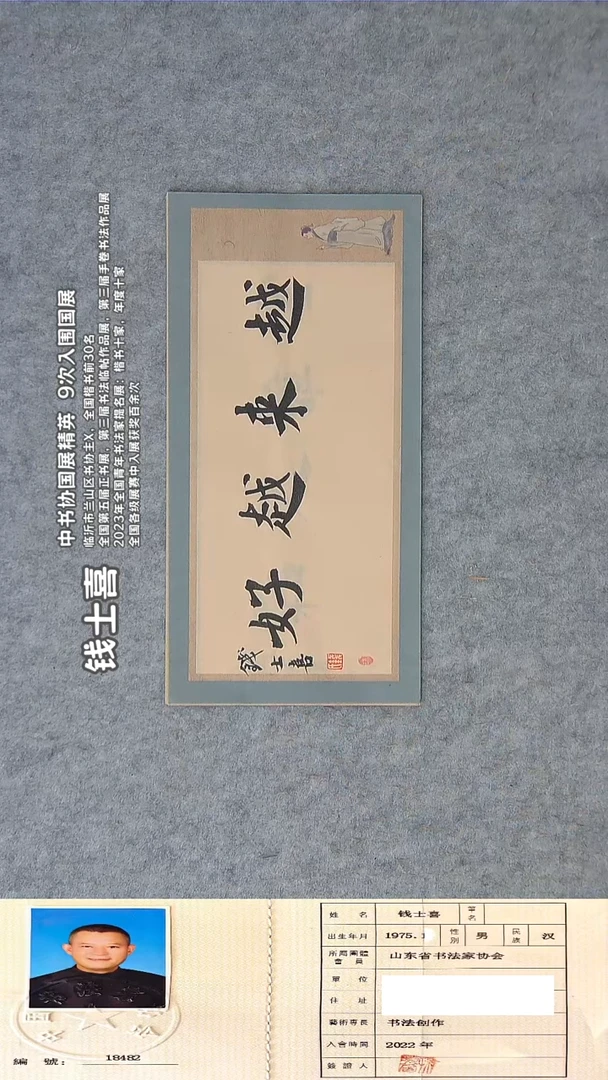 钱士喜
中书协国展精英 9次入围国展
临沂市兰山区书协主X，全国楷书前30名
全国第五届正书展，第三届书法临帖作品展，第三届手卷书法作品展
2023年全国青年书法家提名展：楷书十家，年度十家
全国各级展赛中入展获奖百余次
越来越好
錢士喜
編 號： 18482
姓 名 钱士喜 筆名
出生年月 1975.1 性别 男 民族 汉
所屬團體會員 山东省书法家协会
單 位
住 址
藝術專長 书法创作
入會時間 2022 年
簽證人